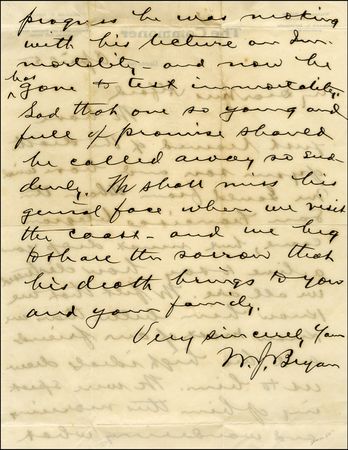 progress he was making
with his lecture on Im-
mortality - and now he
has
gone to test immortality."
Sad that one so young and
full of promise should
be called away so sud
denly. We shall miss his
genial face when we visit
the coast - and we beg
to share the sorrow that
his death brings to you
and your family.
Very sincerely Yours
W. J. Bryan